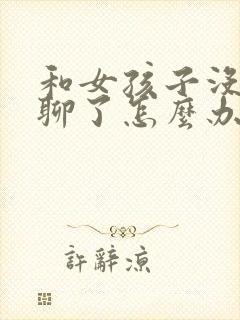 和女孩子没
聊了怎麼办
許辭涼